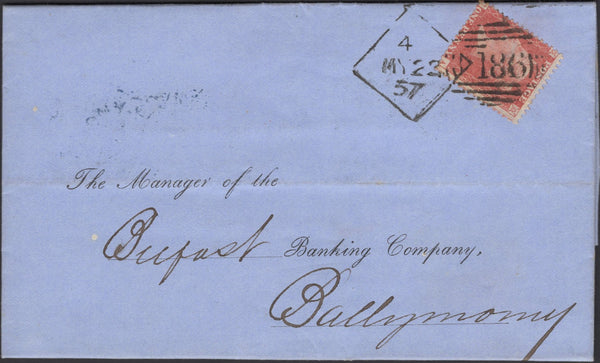 4
MY 23
57
186
The Manager of the
Belfast Banking Company,
Ballymoney